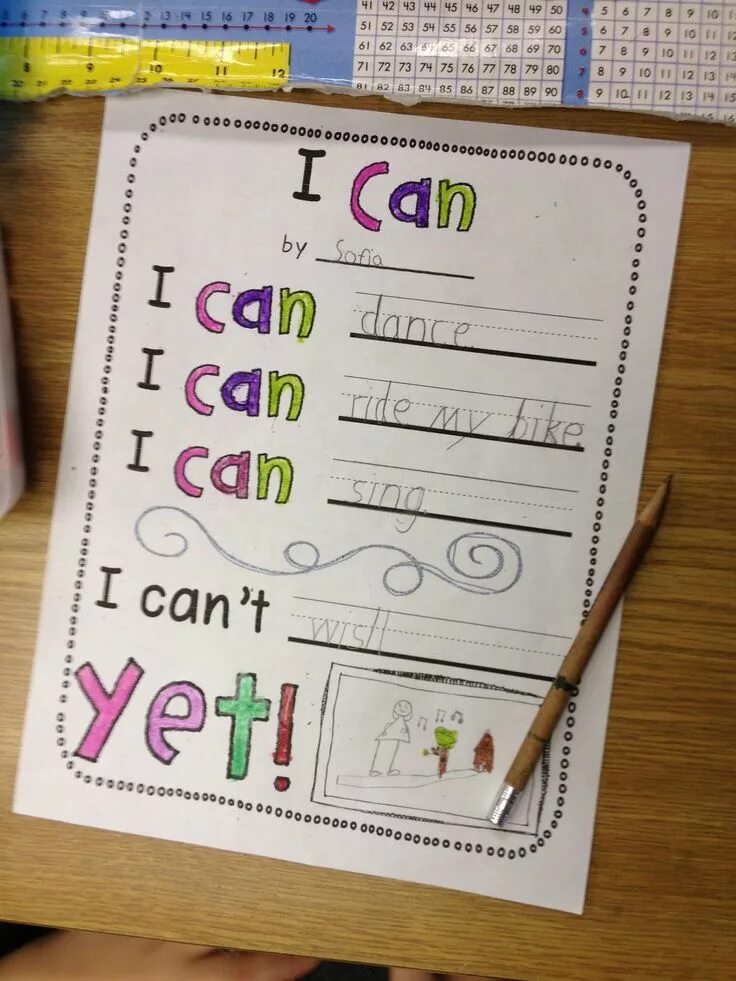 12 13 14 15 16 17 18 19 20
8 9 10 11 12
41 42 43 44 45 46 47 48 49 50
51 52 53 54 55 56 57 58 59 60
61 62 63 64 65 66 67 68 69 70
71 72 73 74 75 76 77 78 79 80
81 82 83 84 85 86 87 88 89 90
4 5 6 7 8 9 10
5 6 7 8 9 10 11 12
6 7 8 9 10 11 12 13
7 8 9 10 11 12 13 14
8 9 10 11 12 13 14 15
I Can
by Sofia
I can dance
I can ride my bike
I can sing
I can't wisll
Yet!